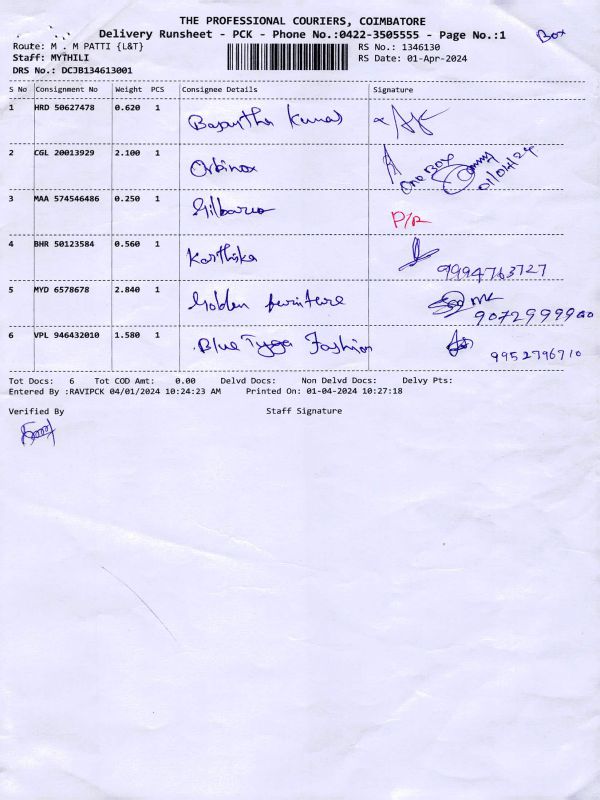 THE PROFESSIONAL COURIERS, COIMBATORE
Delivery Runsheet - PCK - Phone No.:0422-3505555 - Page No.:1
Box
Route: M . M PATTI {L&T}
RS No.: 1346130
Staff: MYTHILI
RS Date: 01-Apr-2024
DRS No.: DCJB134613001
S No Consignment No Weight PCS Consignee Details Signature
1 HRD 50627478 0.620 1 Basantha Kumar
2 CGL 20013929 2.100 1 Orbinox
One Box
01/04/24
3 MAA 574546486 0.250 1 Gilbarco P/R
4 BHR 50123584 0.560 1 Karthika
9994763727
5 MYD 6578678 2.840 1 Golden furniture
9072999900
6 VPL 946432010 1.580 1 Blue Tyga Fashion
9952796710
Tot Docs: 6 Tot COD Amt: 0.00 Delvd Docs: Non Delvd Docs: Delvy Pts:
Entered By :RAVIPCK 04/01/2024 10:24:23 AM Printed On: 01-04-2024 10:27:18
Verified By Staff Signature